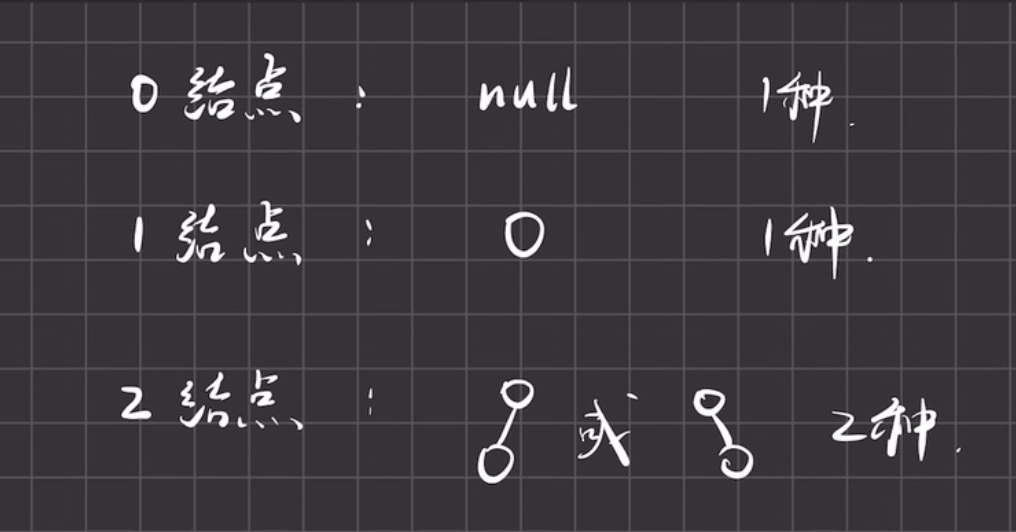 0 结点 : null 1种.
1 结点 : 1种.
2 结点 : 或 2种.